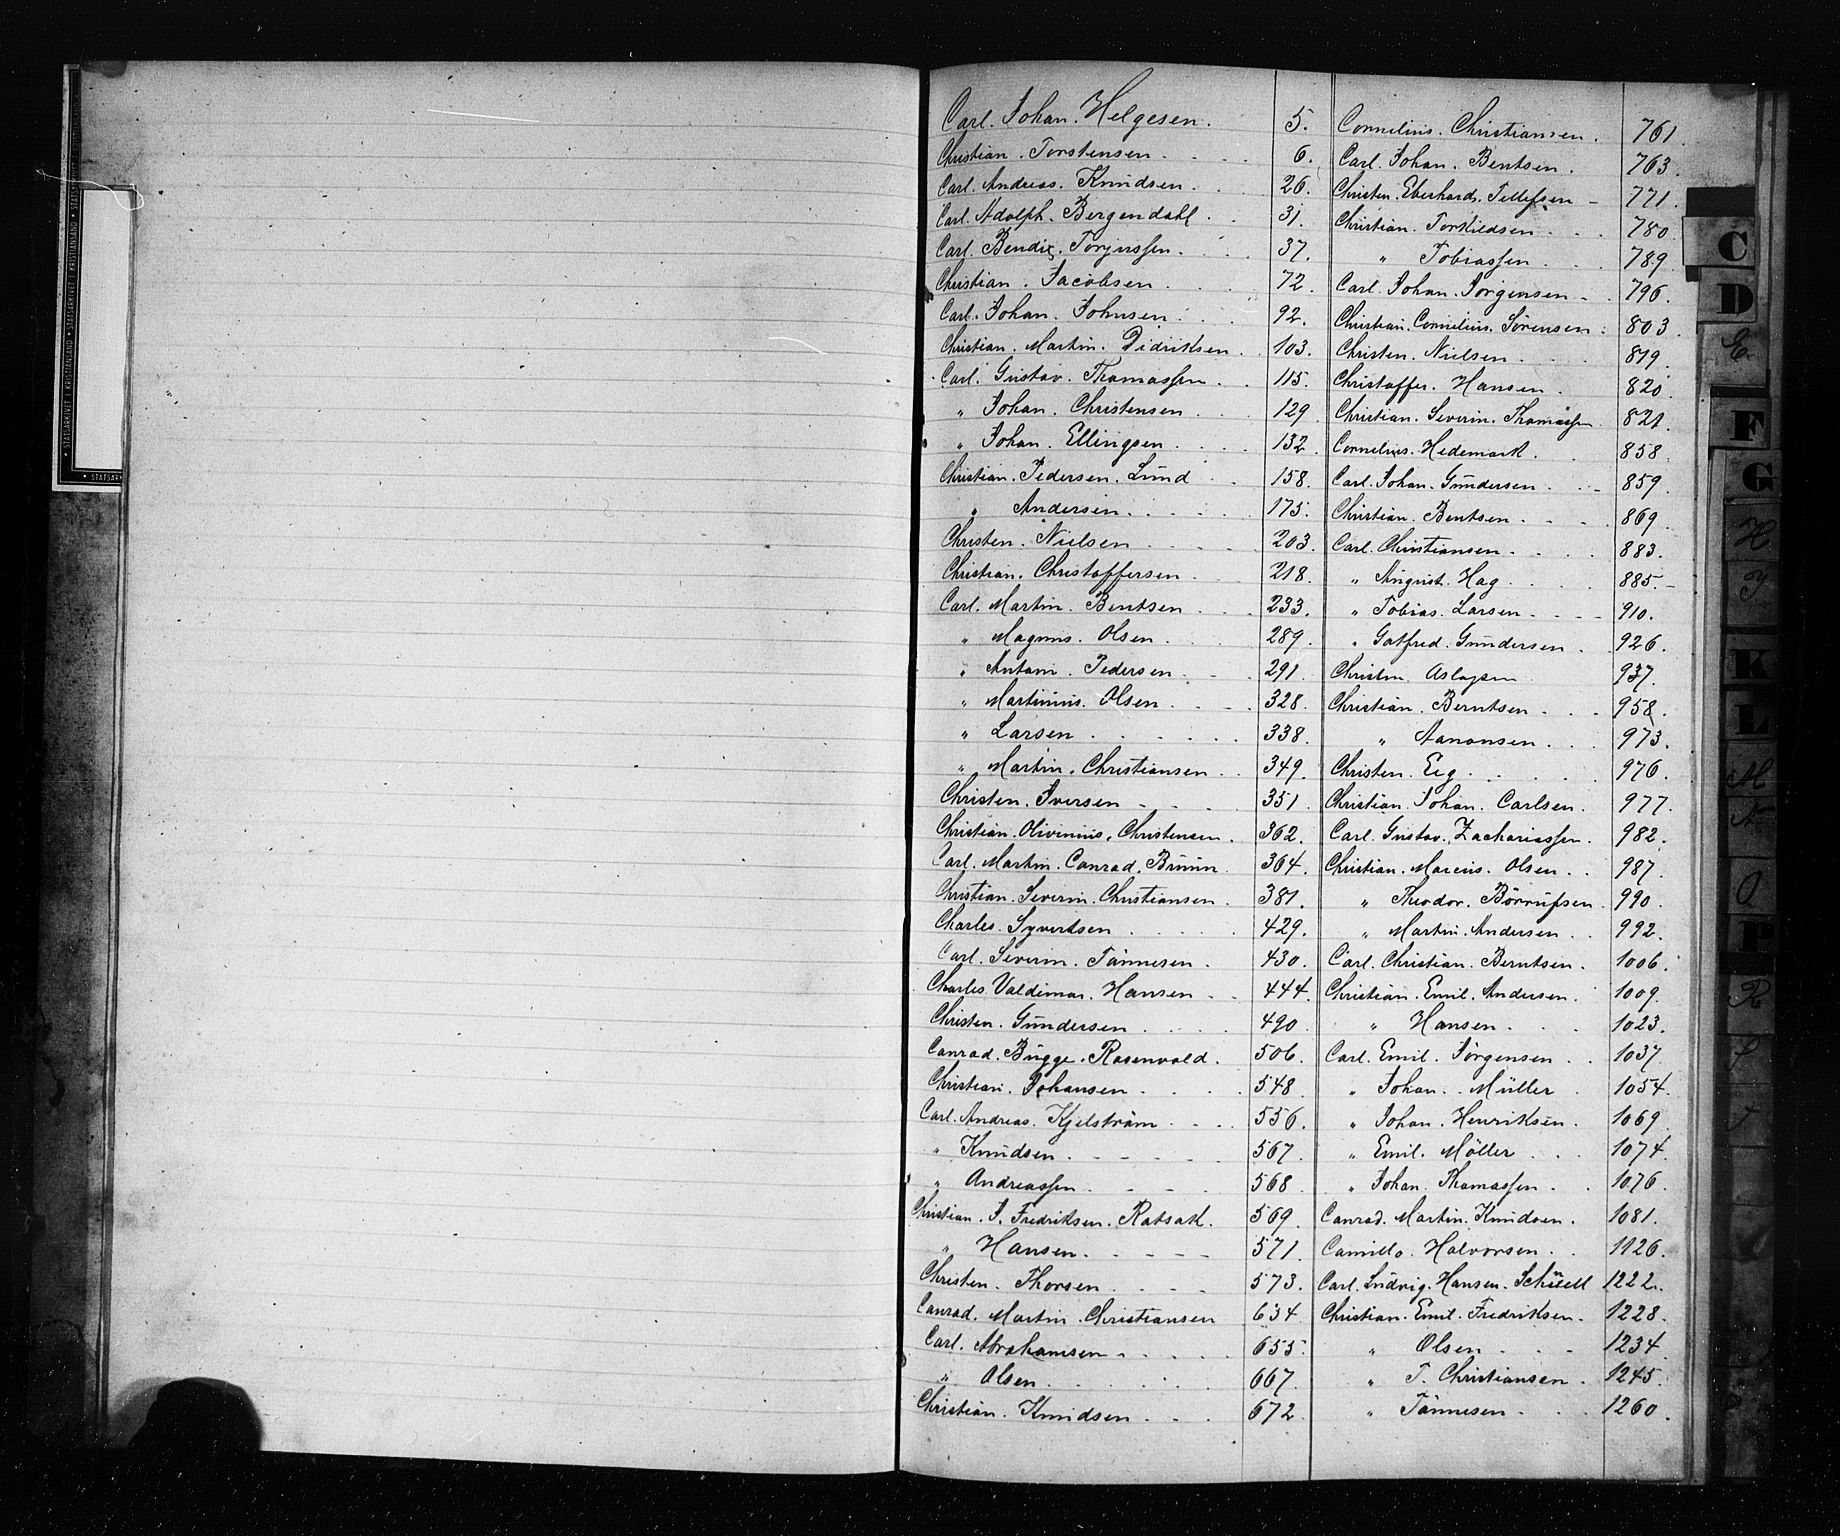 STATSARKIVET I KRISTIANSAND • STATSARKIVET I KRISTIANSAND
Carl. Johan. Helgesen. 5.
Christian. Torstensen. 6.
Carl. Andreas. Knudsen. 26.
Carl. Adolph. Bergendahl. 31.
Carl. Bendix. Torjussen. 37.
Christian. Jacobsen. 72.
Carl. Johan. Johnsen. 92.
Christian. Martin. Didriksen. 103.
Carl. Gustav. Thomassen. 115.
" Johan. Christensen. 129.
" Johan. Ellingsen. 132.
Christian. Pedersen. Lund 158.
" Andersen. 175.
Christen. Nielsen. 203.
Christian. Christoffersen. 218.
Carl. Martin. Bentsen. 233.
" Magnus. Olsen. 289.
" Antoni. Pedersen. 291.
" Martinius. Olsen. 328.
" Larsen. 338.
" Martin. Christiansen. 349.
Christen. Iversen. 351.
Christian. Olivinius. Christensen. 362.
Carl. Martin. Conrad. Bruun. 364.
Christian. Severin. Christiansen. 381.
Charles. Syvertsen. 429.
Carl. Severin. Tønnesen. 430.
Charles. Valdemar. Hansen. 444.
Christen. Gundersen. 490.
Conrad. Bugge. Rosenvold. 506.
Christian. Johansen. 548.
Carl. Andreas. Kjelstrøm. 556.
" Knudsen. 567.
" Andreassen. 568.
Christian. J. Fredriksen. Ratsak. 569.
" Hansen. 571.
Christen. Thorsen. 573.
Conrad. Martin. Christiansen 634.
Carl. Abrahamsen. 655.
" Olsen. 667.
Christian. Knudsen. 672.
Cornelius. Christiansen. 761.
Carl. Johan. Bentsen. 763.
Christen. Eberhard. Tellefsen 771.
Christian. Torkildsen. 780.
" Tobiassen. 789.
Carl. Johan. Jørgensen. 796.
Christian. Cornelius. Sørensen. 803.
Christen. Nielsen. 819.
Christoffer. Hansen. 820.
Christian. Severin. Thomassen 821.
Cornelius. Hedemark. 858.
Carl. Johan. Gundersen. 859.
Christian. Bentsen. 869.
Carl. Christiansen. 883.
" August. Hag. 885.
" Tobias. Larsen. 910.
" Gotfred. Gundersen. 926.
Christen Aslagsen 937.
Christian. Berntsen. 958.
" Aanonsen. 973.
Christen. Eeg. 976.
Christian. Johan. Carlsen. 977.
Carl. Gustav. Zachariassen. 982.
Christian. Marcus. Olsen. 987.
" Theodor. Børrufsen. 990.
" Martin. Andersen. 992.
Carl. Christian. Berntsen. 1006.
Christian. Emil. Andersen. 1009.
" Hansen. 1023.
Carl. Emil. Jørgensen. 1037.
" Johan. Müller 1054.
" Johan. Henriksen. 1069.
" Emil. Møller 1074.
" Johan. Thomassen. 1076.
Conrad. Martin. Knudsen. 1081.
Camillo. Halvorsen. 1126.
Carl. Ludvig. Hansen. 1222.
Christian. Emil. Fredriksen. 1228.
" Olsen 1234.
" T. Christiansen. 1245.
" Tønnesen. 1260.
C
D
E
F
G
H
J
K
L
M
N
O
P
R